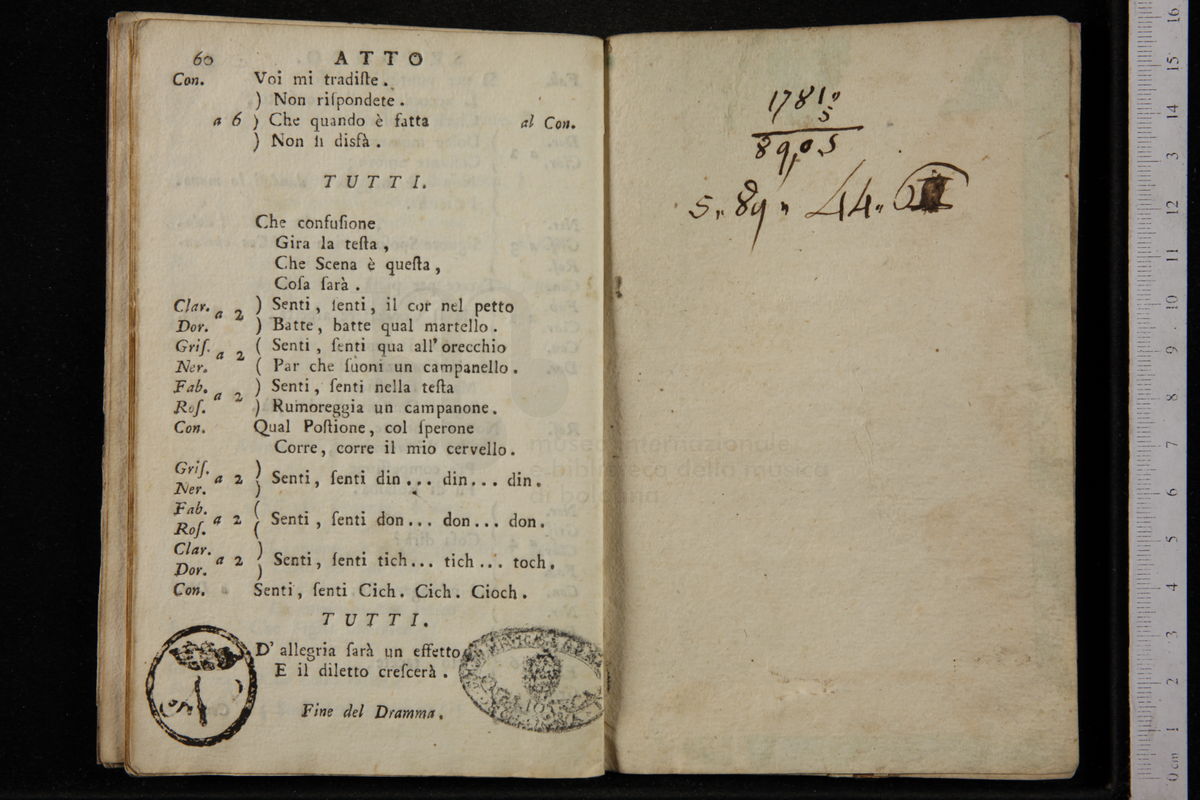 60 ATTO
Con. Voi mi tradiſte.
) Non riſpondete.
a 6 ) Che quando è fatta al Con.
) Non ſi disfà.
TUTTI.
Che confuſione
Gira la teſta,
Che Scena è queſta,
Coſa ſarà.
Clar. a 2 ) Senti, ſenti, il cor nel petto
Dor. ) Batte, batte qual martello.
Griſ. a 2 ( Senti, ſenti qua all' orecchio
Ner. ( Par che ſuoni un campanello.
Fab. a 2 ) Senti, ſenti nella teſta
Roſ. ) Rumoreggia un campanone.
Con. Qual Poſtione, col ſperone
Corre, corre il mio cervello.
Griſ. )
Ner. a 2 ) Senti, ſenti din... din... din.
Fab. (
Roſ. a 2 ( Senti, ſenti don... don... don.
Clar. )
Dor. a 2 ) Senti, ſenti tich... tich... toch.
Con. Senti, ſenti Cich. Cich. Cioch.
TUTTI.
D' allegria ſarà un effetto
E il diletto creſcerà.
Fine del Dramma.
1781
5
8905
5. 89 44.
museo internazionale
e biblioteca della musica
di bologna
0 cm 1 2 3 4 5 6 7 8 9 10 11 12 13 14 15 16